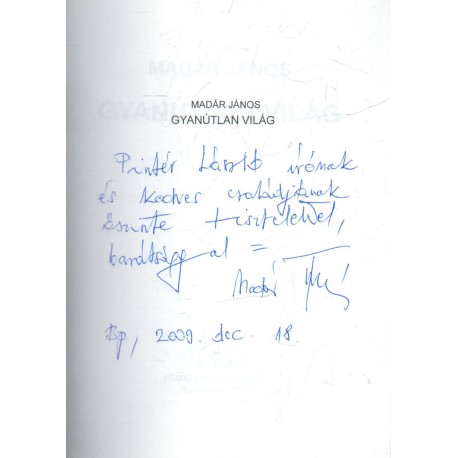 MADÁR JÁNOS
GYANÚTLAN VILÁG
Pintér László írónak
és kedves családjának
őszinte tisztelettel,
barátsággal =
Madár János
Bp, 2009. dec. 18.